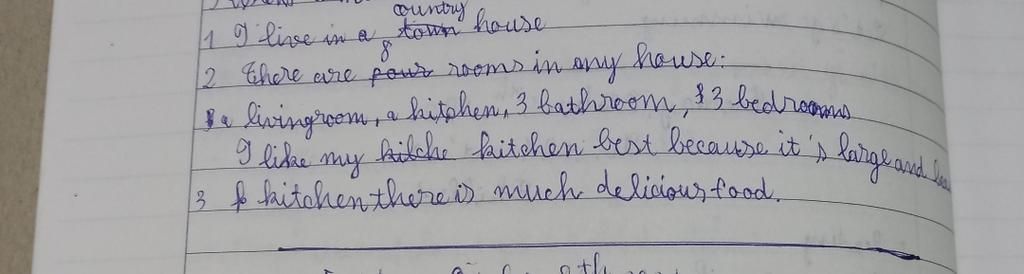 country
1 I live in a town house
8
2 there are four rooms in any house:
a livingroom, a hitphen, 3 bathroom, 3 bedrooms
I like my kitche kitchen best because it's large and
3 kitchen there is much delicious food.